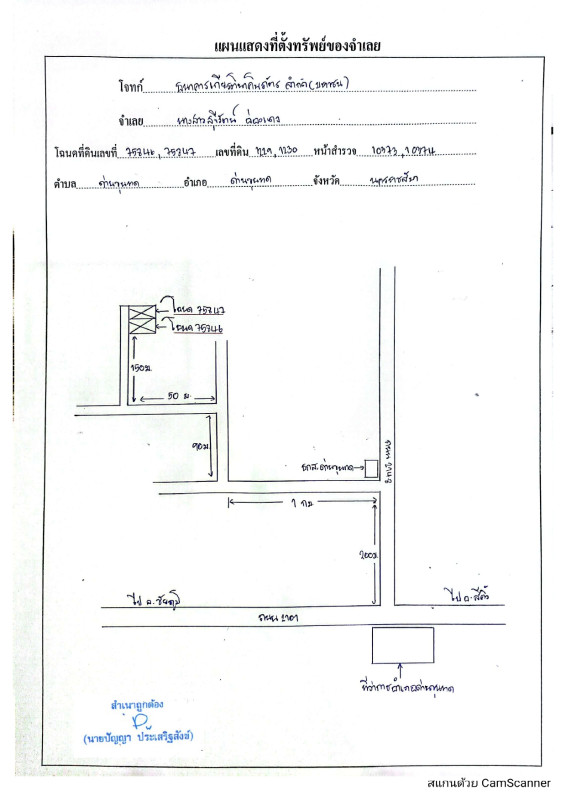 แผนแสดงที่ตั้งทรัพย์ของจำเลย
โจทก์ ธนาคารเกียรตินาคินภัทร จำกัด (มหาชน)
จำเลย นางสาวสุรีรัตน์
โฉนดที่ดินเลขที่ 75746, 75747 เลขที่ดิน 1129, 1130 หน้าสำรวจ 10973, 10974
ตำบล ด่านขุนทด อำเภอ ด่านขุนทด จังหวัด นครราชสีมา
โฉนด 75747
โฉนด 75746
150 ม.
50 ม.
90 ม.
ธกส. ด่านขุนทด
1 กม.
200 ม.
ไป อ. ชัยภูมิ
ไป อ. สีคิ้ว
ถนน 2101
ที่ว่าการอำเภอด่านขุนทด
สำเนาถูกต้อง
(นายปัญญา ประเสริฐสังข์)
สแกนด้วย CamScanner